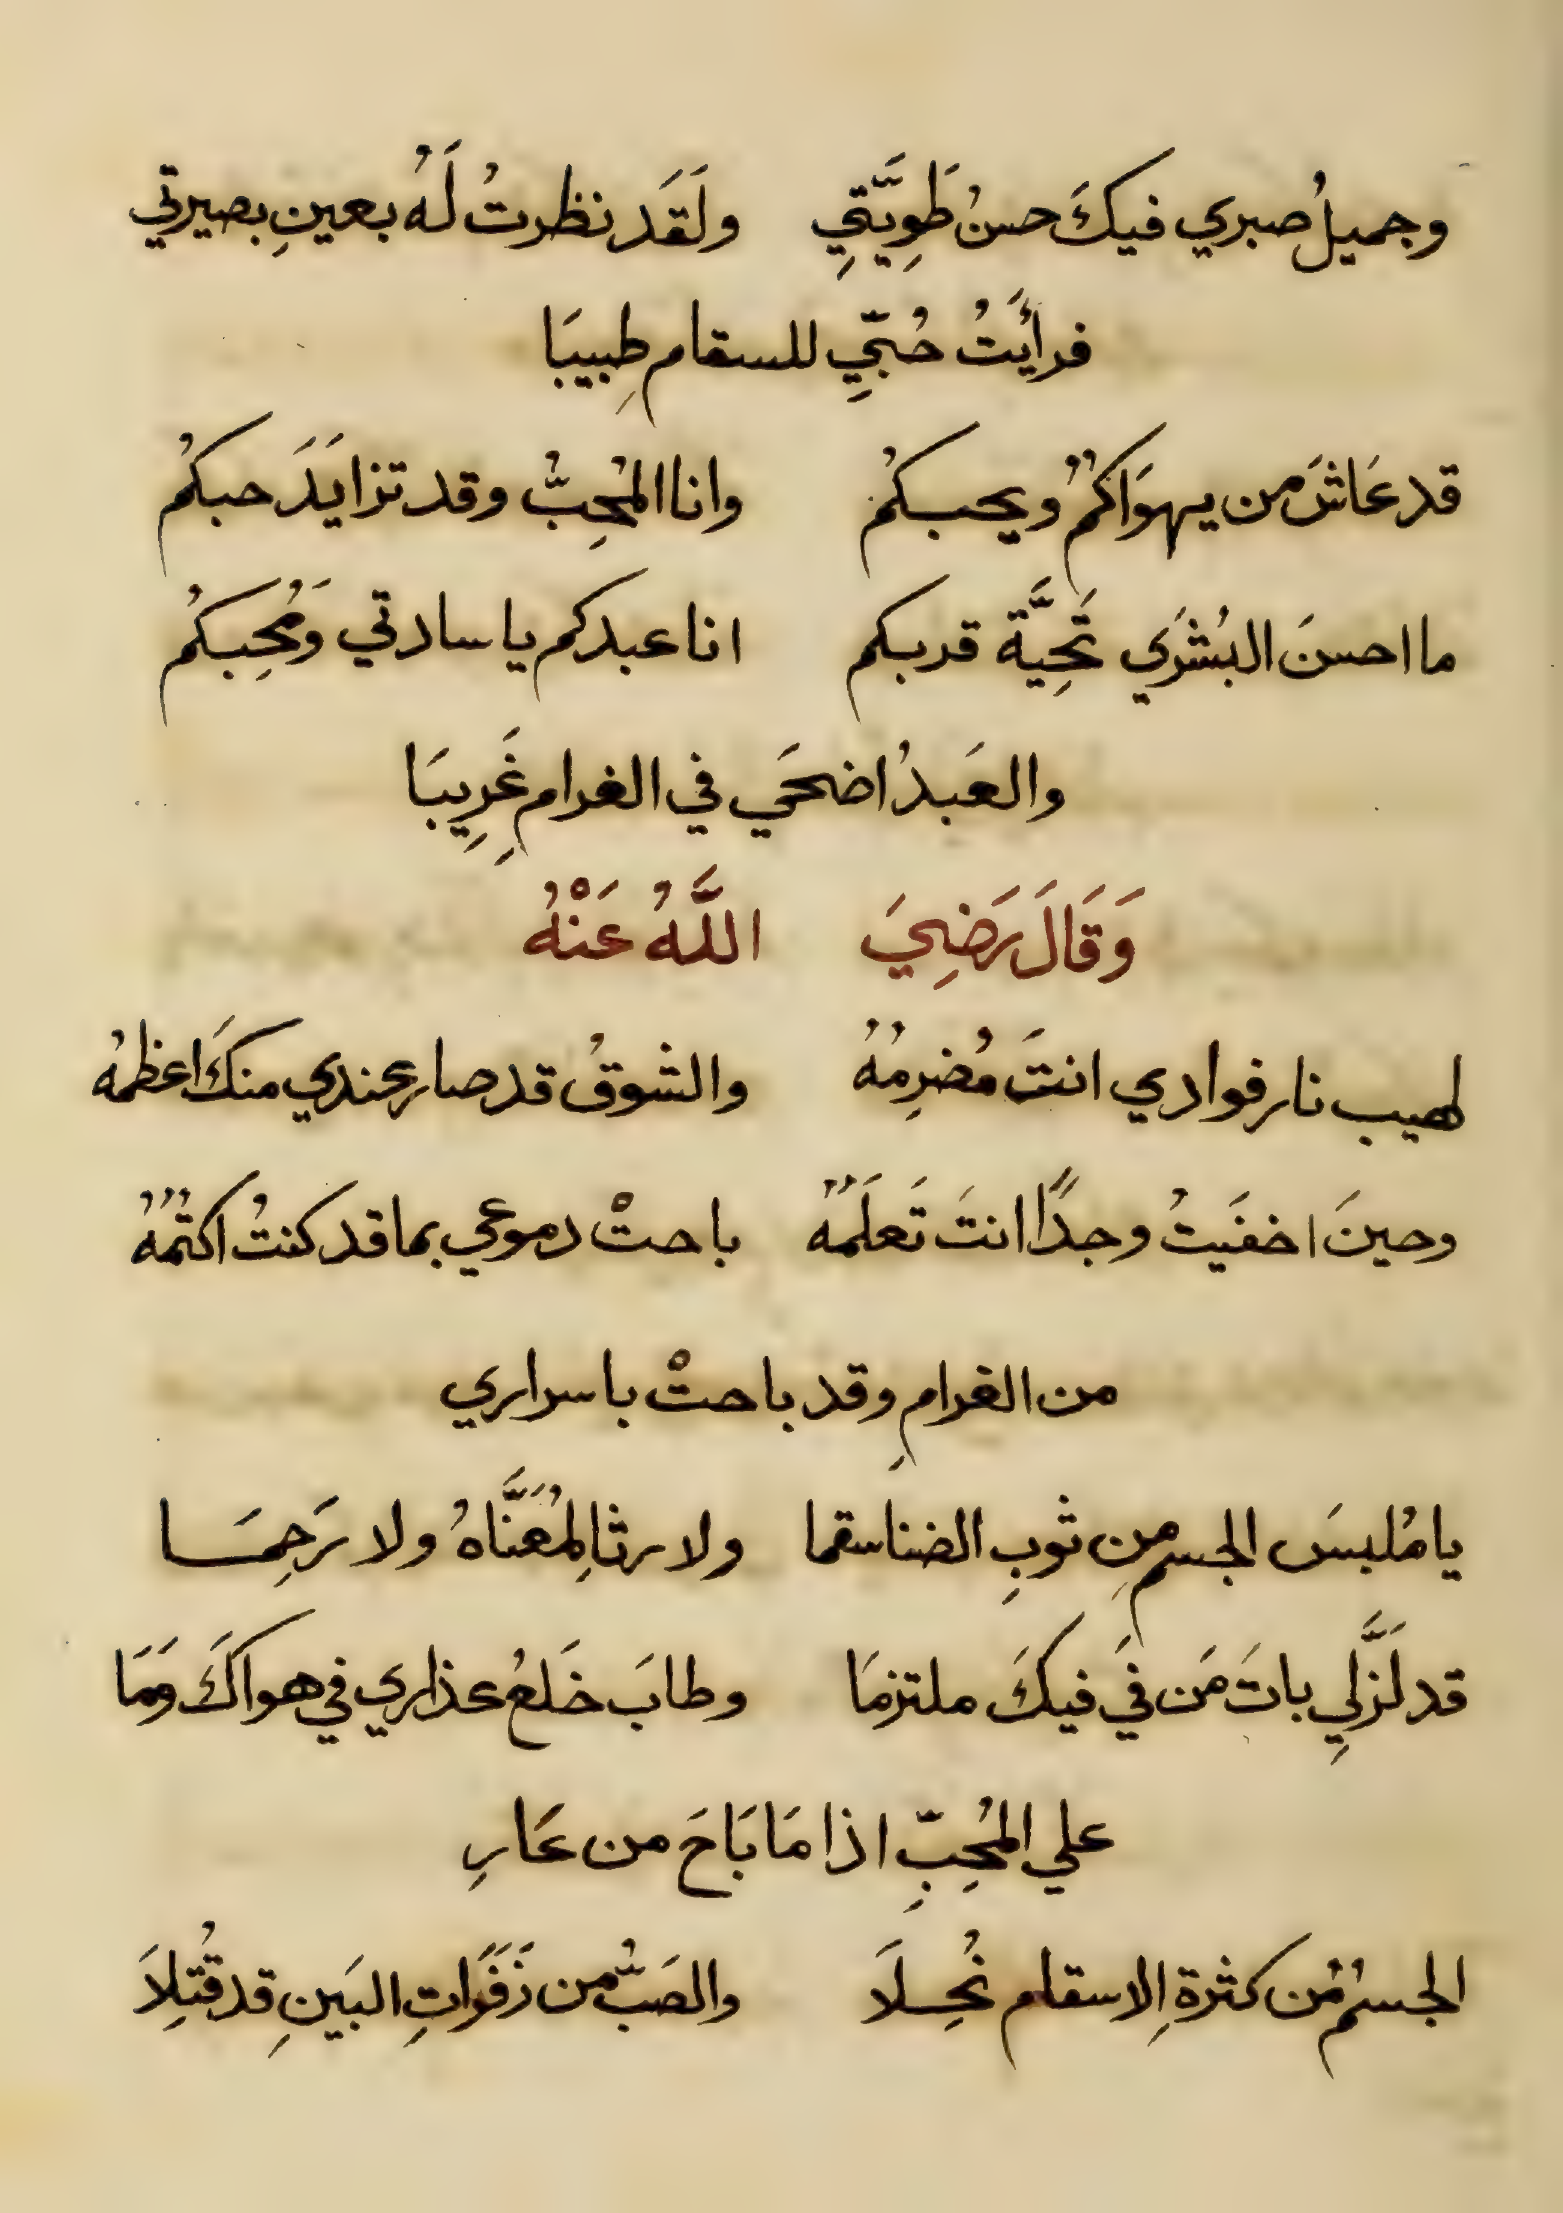 وجميلُ صبري فيكَ حسنُ طَوِيَّتِي ولَقَد نظرتُ لَهُ بعينِ بصيرتي
فرأَيتُ حُبِّي للسقام طِبيبَا
قد عَاشَ من يهوَاكمُ ويحبكمُ وانا المُحِبُّ وقد تزايَدَ حبكمُ
ما احسنَ البُشرَي تَحِيَّة قربكم انا عبدكم يا سادتي وَمُحِبكمُ
والعَبدُ اضحَي في الغرامِ غَرِيبَا
وَقَالَ رَضِيَ اللَّهُ عَنْهُ
لهيب نار فوادي انتَ مُضرِمُهُ والشوقُ قد صار عندي منكَ اعظمُه
وحينَ اخفَيتُ وجدًا انتَ تَعلَمُهُ باحتْ دموعي بما قد كنتُ اكتمُهُ
من الغرامِ وقد باحتْ باسراري
يا مُلبسَ الجسمِ مِن ثوبِ الضنا سقما ولا رثا لِمُعَنَّاهُ ولا رَحِمَا
قد لَذَّ لِي باتَ مَن في فيكَ ملتزمَا وطابَ خَلعُ عذاري في هواكَ وَمَا
علي المُحِبِّ اذا مَا بَاحَ من عَارِ
الجسمُ مُن كثرةِ الاسقام نُحِلَا والصَبُّ من زَفَرَاتِ البَينِ قد قُتِلَا